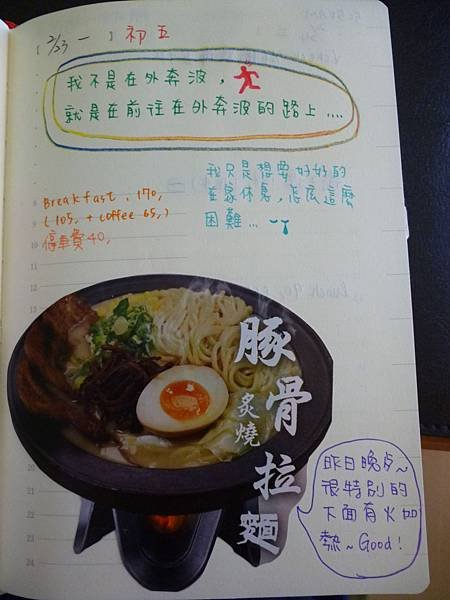 (2/23 一) 初五
我不是在外奔波，
就是在前往在外奔波的路上....
我只是想要好好的
在家休息，怎麼這麼
困難...
Breakfast. 170,
(105, + coffee 65,)
停車費40,
豚骨拉麵
炙燒
昨日晚歺~
很特別的
下面有火加
熱~Good!
8
9
10
11
12
13
20
21
22
23
24